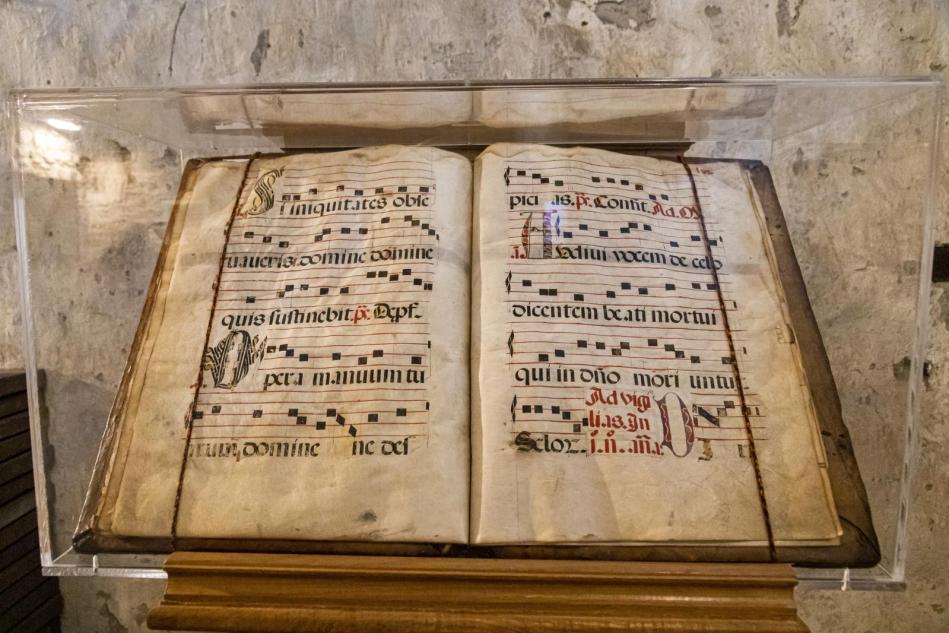 Si iniquitates obser
uaueris domine domine
quis sustinebit. ps. Dep̱f.
Opera manuum tu
arum, domine ne des
pici as. ps. Confit. Ad. Os
A. Audiui vocem de celo
dicentem beati mortui
qui in dño mori untur
Ad vigi
lias. In
Seloz. i. n. m. i.